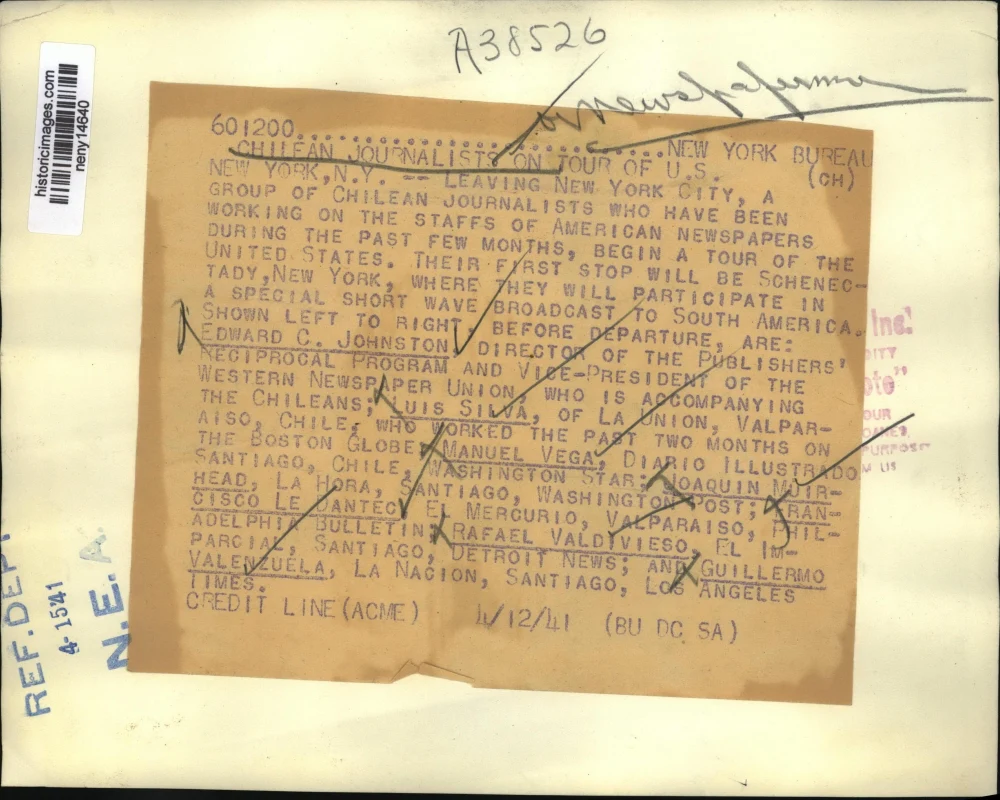 A38526
Newspapermen
historicimages.com
neny14640
601200..............................NEW YORK BUREAU
CHILEAN JOURNALISTS ON TOUR OF U.S. (CH)
NEW YORK, N.Y. -- LEAVING NEW YORK CITY, A
GROUP OF CHILEAN JOURNALISTS WHO HAVE BEEN
WORKING ON THE STAFFS OF AMERICAN NEWSPAPERS
DURING THE PAST FEW MONTHS, BEGIN A TOUR OF THE
UNITED STATES. THEIR FIRST STOP WILL BE SCHENEC-
TADY, NEW YORK, WHERE THEY WILL PARTICIPATE IN
A SPECIAL SHORT WAVE BROADCAST TO SOUTH AMERICA.
SHOWN LEFT TO RIGHT, BEFORE DEPARTURE, ARE:
EDWARD C. JOHNSTON, DIRECTOR OF THE PUBLISHERS'
RECIPROCAL PROGRAM AND VICE-PRESIDENT OF THE
WESTERN NEWSPAPER UNION, WHO IS ACCOMPANYING
THE CHILEANS; LUIS SILVA, OF LA UNION, VALPAR-
AISO, CHILE, WHO WORKED THE PAST TWO MONTHS ON
THE BOSTON GLOBE; MANUEL VEGA, DIARIO ILLUSTRADO
SANTIAGO, CHILE, WASHINGTON STAR; JOAQUIN MUIR-
HEAD, LA HORA, SANTIAGO, WASHINGTON POST; FRAN-
CISCO LE DANTEC, EL MERCURIO, VALPARAISO, PHIL-
ADELPHIA BULLETIN; RAFAEL VALDIVIESO, EL IM-
PARCIAL, SANTIAGO, DETROIT NEWS; AND GUILLERMO
VALENZUELA, LA NACION, SANTIAGO, LOS ANGELES
TIMES.
CREDIT LINE (ACME) 4/12/41 (BU DC SA)
REF. DEPT
4-15 41
N.E.A.
Inc.
OUR
PURPOSE
US